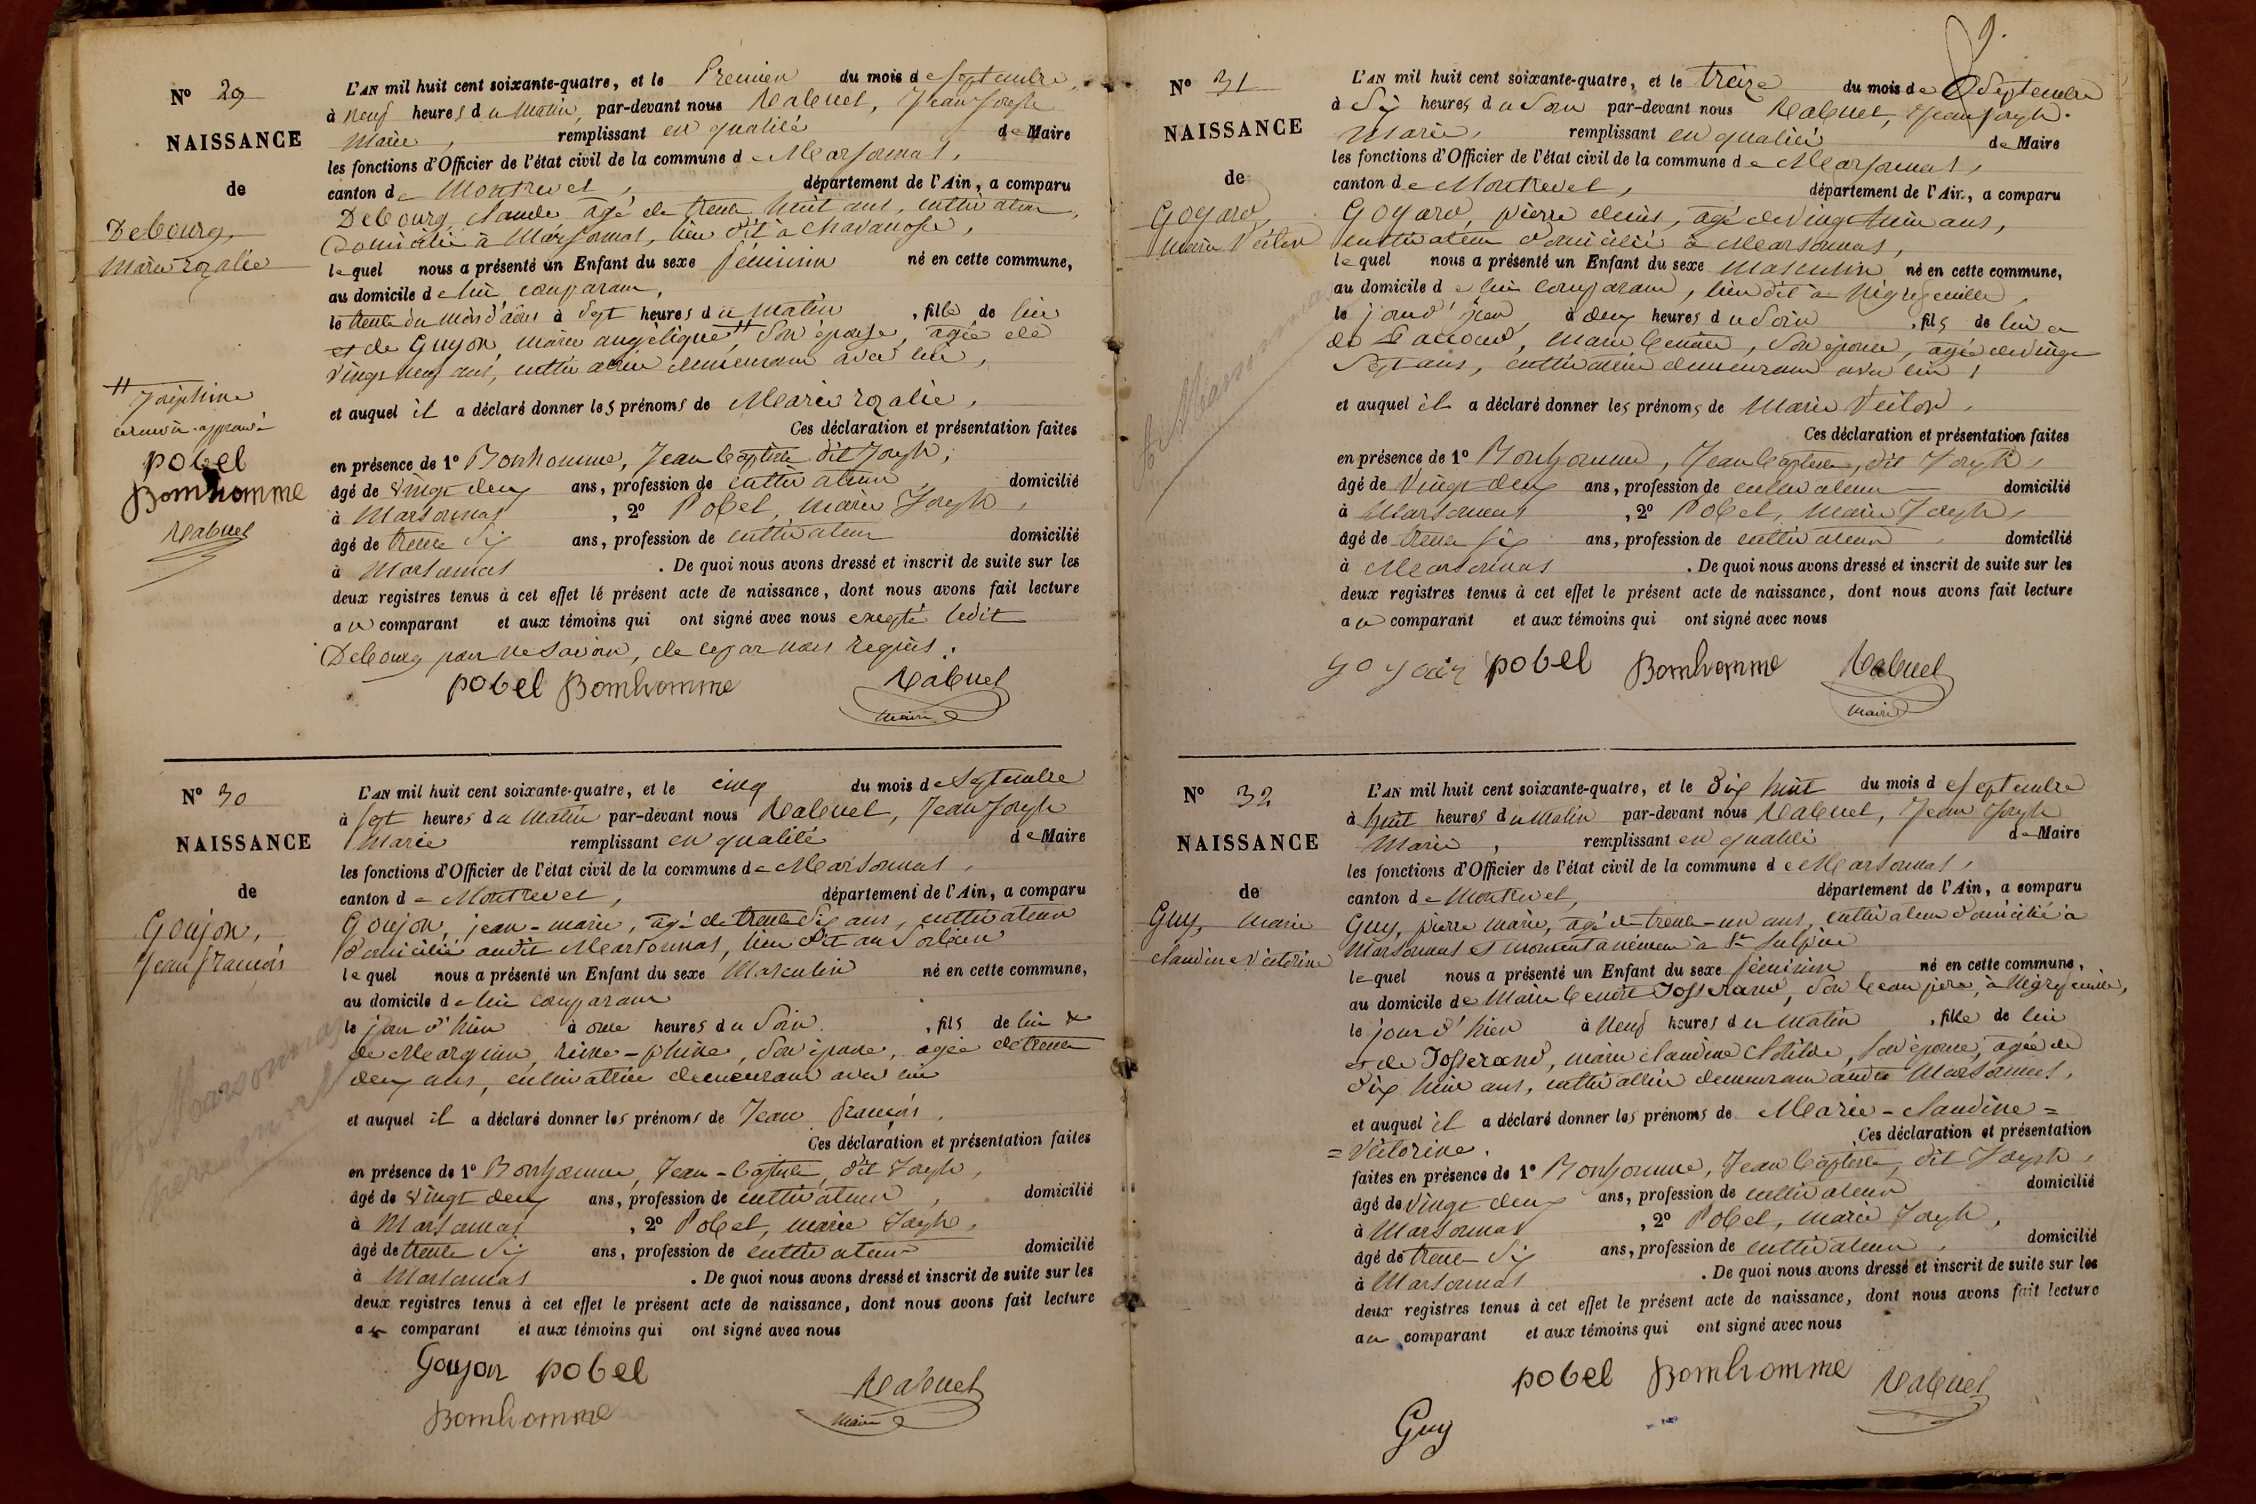 Nº 29
NAISSANCE
de
Debourg,
Marie rozalie
Joséphine
pobel
Bonhomme
Rabuel
L'AN mil huit cent soixante-quatre, et le Premier du mois de septembre,
à neuf heures du matin, par-devant nous Rabuel, Jean Joseph
Marie, remplissant en qualité de Maire
les fonctions d'Officier de l'état civil de la commune de Marsonnas,
canton de Montrevel, département de l'Ain, a comparu
Debourg, claude agé de trente huit ans, cultivateur,
Domicilié à Marsonnas, lieu dit a chavanosse,
lequel nous a présenté un Enfant du sexe féminin né en cette commune,
au domicile de lui comparant,
le trente du mois d'août à Sept heures du matin, fille de lui
et de Guyon, marie angélique # Son épouse, agée de
vingt neuf ans, cultivatrice demeurant avec lui,
et auquel il a déclaré donner les prénoms de Marie rozalie,
Ces déclaration et présentation faites
en présence de 1º Bonhomme, Jean baptiste dit Joseph,
âgé de vingt deux ans, profession de cultivateur, domicilié
à Marsonnas, 2º Pobel, marie Joseph,
âgé de trente Six ans, profession de cultivateur domicilié
à Marsonnas. De quoi nous avons dressé et inscrit de suite sur les
deux registres tenus à cet effet le présent acte de naissance, dont nous avons fait lecture
au comparant et aux témoins qui ont signé avec nous excepté ledit
Debourg pour ne savoir, de ce par nous requis.
pobel Bonhomme Rabuel
maire
Nº 30
NAISSANCE
de
Goujon,
Jean françois
L'AN mil huit cent soixante-quatre, et le cinq du mois de Septembre
à Sept heures du matin par-devant nous Rabuel, Jean Joseph
Marie remplissant en qualité de Maire
les fonctions d'Officier de l'état civil de la commune de Marsonnas,
canton de Montrevel, département de l'Ain, a comparu
Goujon, jean-marie, agé de trente Six ans, cultivateur
domicilié audit Marsonnas, lieu dit au
lequel nous a présenté un Enfant du sexe Masculin né en cette commune,
au domicile de lui comparant
le jour d'hier à onze heures du Soir, fils de lui &
de Marguin, reine-phine, Son épouse, agée de trente
deux ans, cultivatrice demeurant avec lui
et auquel il a déclaré donner les prénoms de Jean françois,
Ces déclaration et présentation faites
en présence de 1º Bonhomme, Jean-baptiste, dit Joseph,
âgé de vingt deux ans, profession de cultivateur, domicilié
à Marsonnas, 2º Pobel, marie Joseph,
âgé de trente Six ans, profession de cultivateur domicilié
à Marsonnas. De quoi nous avons dressé et inscrit de suite sur les
deux registres tenus à cet effet le présent acte de naissance, dont nous avons fait lecture
au comparant et aux témoins qui ont signé avec nous
Goujon pobel
Bonhomme Rabuel
maire
9.
Nº 31
NAISSANCE
de
Goyard,
Marie Victor
L'AN mil huit cent soixante-quatre, et le treize du mois de Septembre
à Six heures du Soir par-devant nous Rabuel, Jean Joseph
Marie, remplissant en qualité de Maire
les fonctions d'Officier de l'état civil de la commune de Marsonnas,
canton de Montrevel, département de l'Ain, a comparu
Goyard, pierre denis, agé de vingt huit ans,
cultivateur domicilié à Marsonnas,
lequel nous a présenté un Enfant du sexe Masculin né en cette commune,
au domicile de lui comparant, lieu dit à Nigrefeuille,
le jour d'hier, à deux heures du Soir, fils de lui et
de, Marie, Son épouse, agée de vingt
Sept ans, cultivatrice demeurant avec lui,
et auquel il a déclaré donner les prénoms de Marie Victor,
Ces déclaration et présentation faites
en présence de 1º Bonhomme, Jean baptiste, dit Joseph,
âgé de Vingt deux ans, profession de cultivateur domicilié
à Marsonnas, 2º Pobel, Marie Joseph,
âgé de trente Six ans, profession de cultivateur domicilié
à Marsonnas. De quoi nous avons dressé et inscrit de suite sur les
deux registres tenus à cet effet le présent acte de naissance, dont nous avons fait lecture
au comparant et aux témoins qui ont signé avec nous
pobel Bonhomme Rabuel
maire
Nº 32
NAISSANCE
de
Guy, marie
claudine victorine
L'AN mil huit cent soixante-quatre, et le Dix huit du mois de Septembre
à huit heures du matin par-devant nous Rabuel, Jean Joseph
Marie, remplissant en qualité de Maire
les fonctions d'Officier de l'état civil de la commune de Marsonnas,
canton de Montrevel, département de l'Ain, a comparu
Guy, pierre marie, agé de trente-un ans, cultivateur domicilié à
Marsonnas et momentanément à St Sulpice
lequel nous a présenté un Enfant du sexe féminin né en cette commune,
au domicile de Marie benoit Josserand, Son beau père, à Nigrefeuille,
le jour d'hier à Neuf heures du matin, fille de lui
et de Josserand, marie claudine clotilde, Son épouse, agée de
dix huit ans, cultivatrice demeurant audit Marsonnas,
et auquel il a déclaré donner les prénoms de Marie-claudine=
=Victorine. Ces déclaration et présentation
faites en présence de 1º Bonhomme, Jean baptiste, dit Joseph,
âgé de vingt deux ans, profession de cultivateur domicilié
à Marsonnas, 2º Pobel, marie Joseph,
âgé de trente Six ans, profession de cultivateur, domicilié
à Marsonnas. De quoi nous avons dressé et inscrit de suite sur les
deux registres tenus à cet effet le présent acte de naissance, dont nous avons fait lecture
au comparant et aux témoins qui ont signé avec nous
pobel Bonhomme Rabuel
Guy